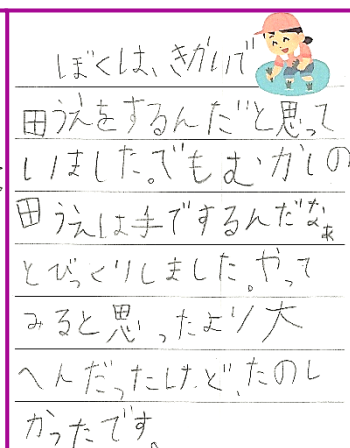 ぼくは、きかいで
田うえをするんだと思って
いました。でもむかしの
田うえは手でするんだなぁ
とびっくりしました。やって
みると思ったより大
へんだったけど、たのし
かったです。